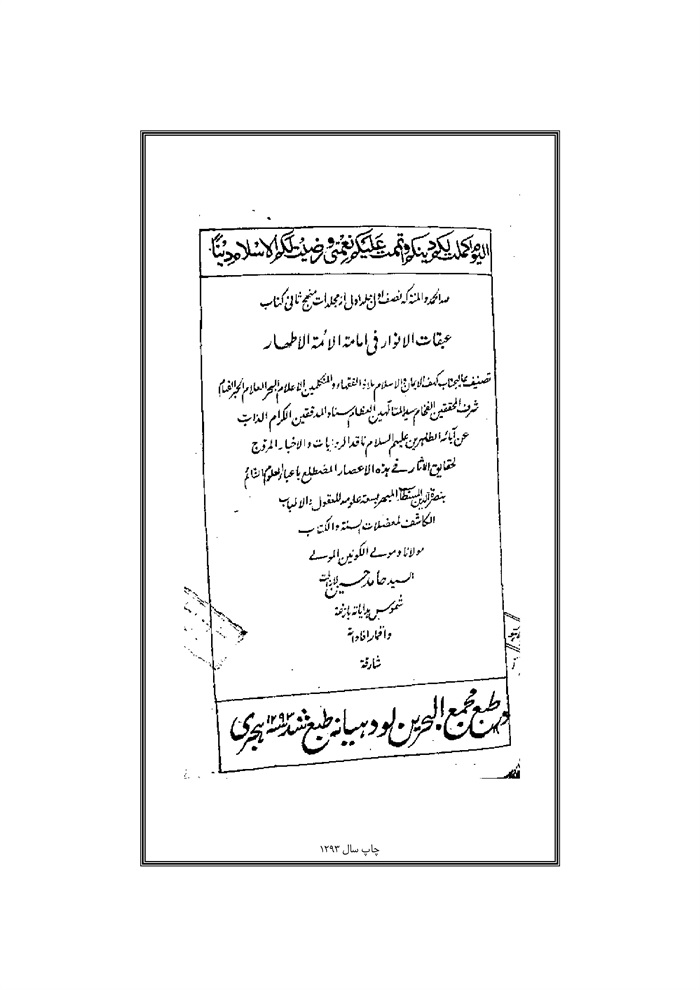 الیوم اکملت لکم دینکم و اتممت علیکم نعمتی و رضیت لکم الاسلام دینا
لله الحمد و المنه که نصف اول جلد اولی از مجلدات منهج ثانی کتاب
عبقات الانوار فی امامة الائمة الاطهار
تصنیف عالیجناب کهف الایمان و الاسلام ملاذ الفقهاء و المتکلمین الاعلام البحر العلام الحبر القمقام
شرف المحققین الفخام سید المتالهین العظام سناد المدققین الکرام الذاب
عن آبائه الطاهرین علیهم السلام ناقد الروایات و الاخبار المروج
لحقایق الآثار فی هذه الاعصار المضطلع باعباء العلوم القائم
بنصرة الدین المستطاب المبهر بسعة علومه للعقول و الالباب
الکاشف لمعضلات السنة و الکتاب
مولانا و مولی الکونین المولی
السید حامد حسین لازالت
شموس هدایاته بازغة
و اقمار افاداته
شارقة
در مطبع مجمع البحرین لودهیانه طبع شد ۱۲۹۳ سنه هجری
چاپ سال ۱۲۹۳